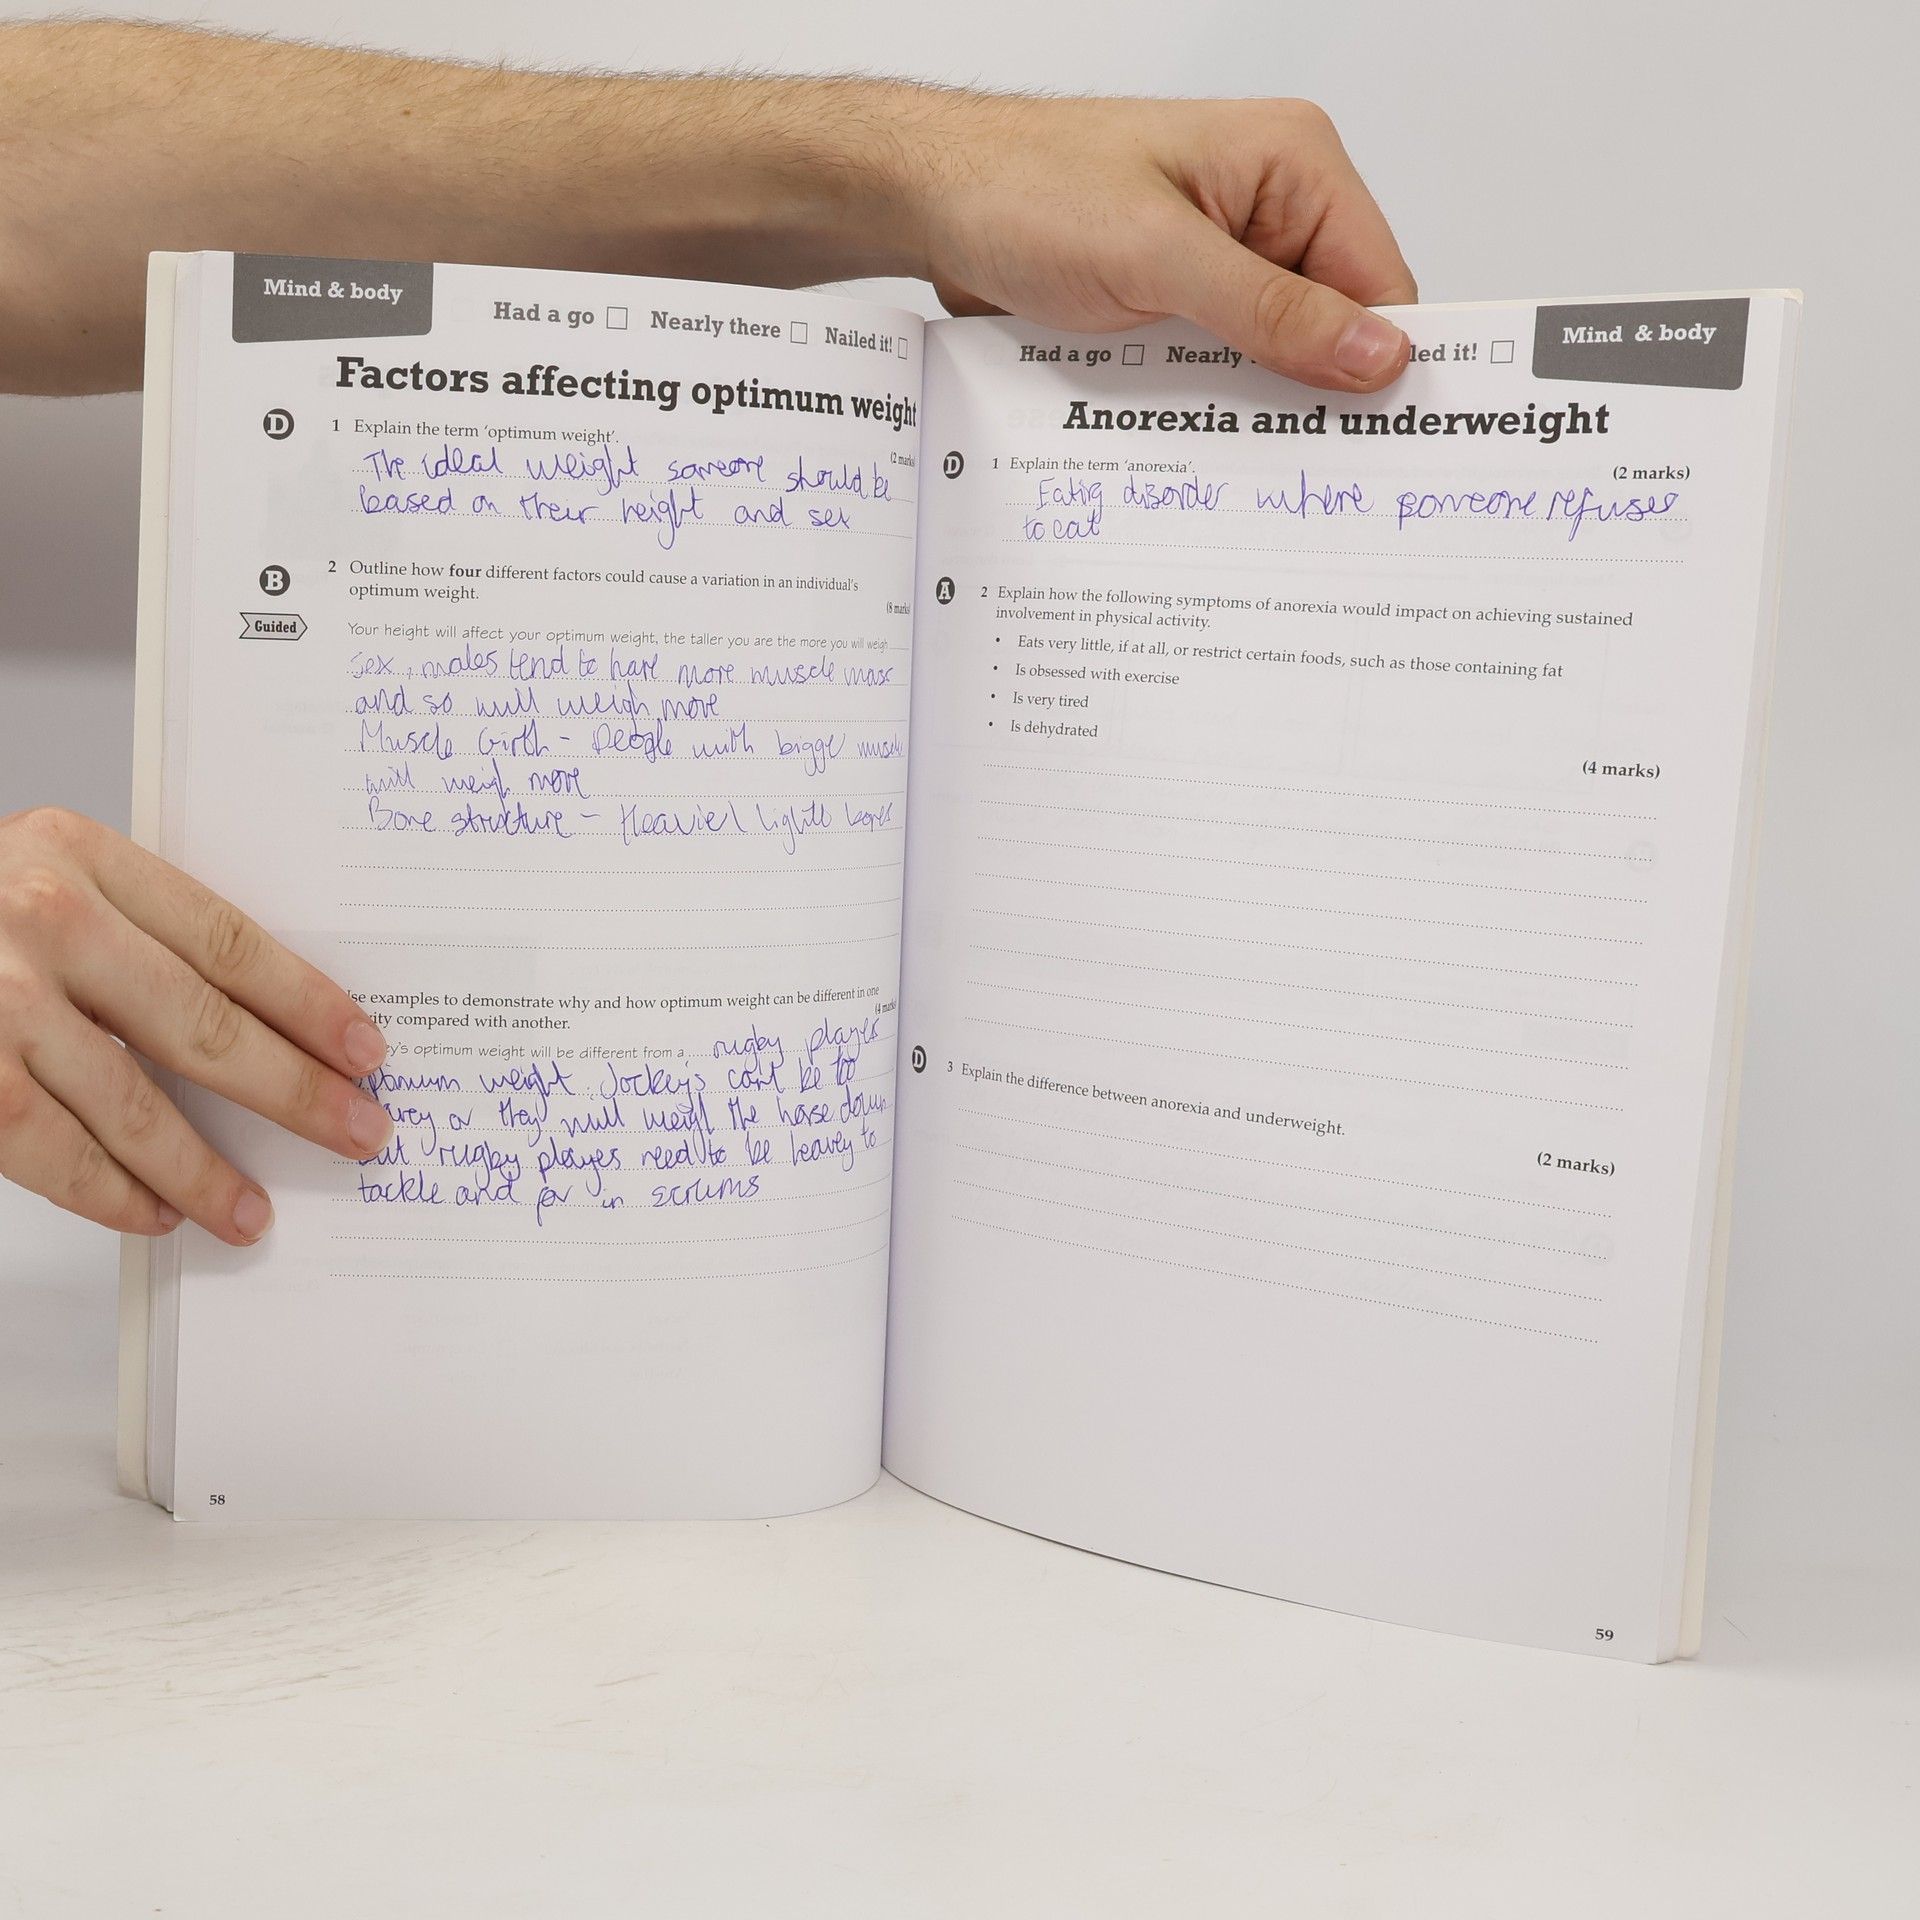 Mind & body
Had a go Nearly there Nailed it!
Factors affecting optimum weight
D
1 Explain the term 'optimum weight'.
(2 marks
The ideal weight someone should be
based on their height and sex
B
2 Outline how four different factors could cause a variation in an individual's
optimum weight.
(8 marks
Guided
Your height will affect your optimum weight, the taller you are the more you will weigh
Sex, males tend to have more muscle mass
and so will weigh more
Muscle Girth - People with bigger muscles
will weigh more
Bone structure - Heavier/ bones
se examples to demonstrate why and how optimum weight can be different in one
ity compared with another.
(4 marks
ey's optimum weight will be different from a rugby player
optimum weight. Jockey's cant be too
or they will weigh the horse down
but rugby players need to be heavey to
tackle and for in scrums
58
Had a go Nearly led it!
Mind & body
Anorexia and underweight
D
1 Explain the term 'anorexia'.
(2 marks)
Eating disorder where someone refuses
to eat
A
2 Explain how the following symptoms of anorexia would impact on achieving sustained
involvement in physical activity.
• Eats very little, if at all, or restrict certain foods, such as those containing fat
• Is obsessed with exercise
• Is very tired
• Is dehydrated
(4 marks)
D
3 Explain the difference between anorexia and underweight.
(2 marks)
59